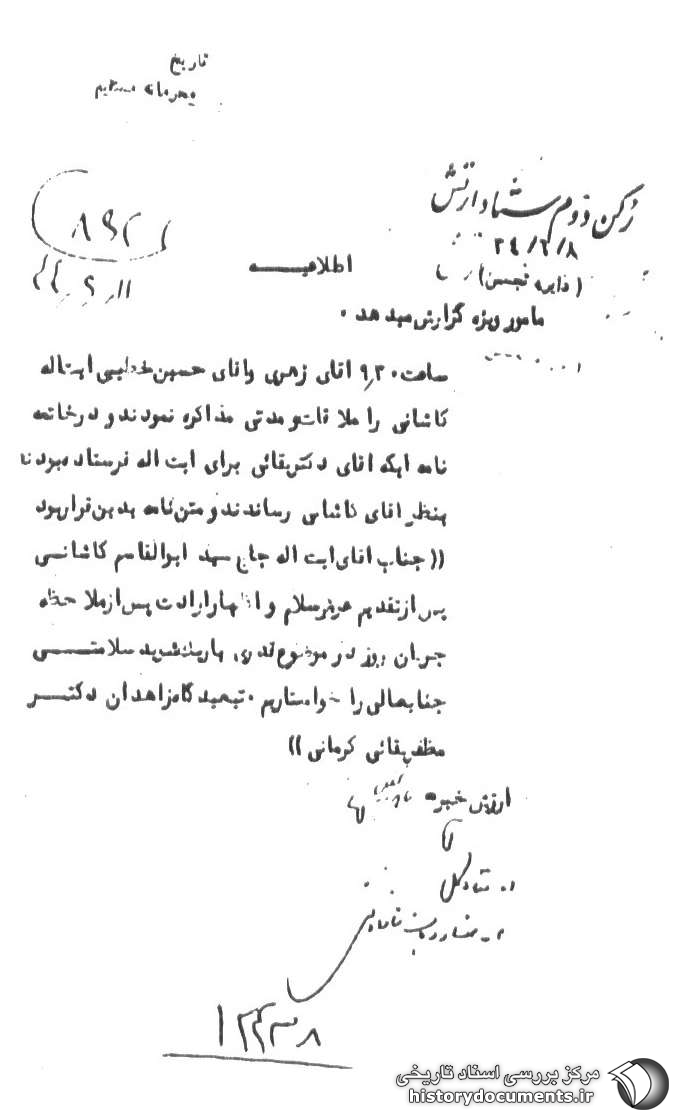 تاریخ
محرمانه مستقیم
رکن دوم ستاد ارتش
۳۴/۶/۸
اطلاعیه
(دایره تجسس)
مامور ویژه گزارش میدهد .
ساعت ۹٫۳۰ اقای زهری واقای حسین خطیبی ایت‌اله
کاشانی را ملاقات و مدتی مذاکره نمودند و درخاتمه
نامه ایکه اقای دکتربقائی برای ایت اله فرستاده بودند
بنظر اقای کاشانی رساندند و متن نامه بدین قرار بود
((جناب اقای ایت اله حاج سید ابوالقاسم کاشانی
پس از تقدیم عرض سلام و اظهار ارادت پس از ملاحظه
جریان روز در موضوع قدری باریک‌شوید سلامتی
جنابعالی را خواستاریم . تبعید گاه زاهدان دکتر
مظفربقائی کرمانی ))
ارزش خبر
۱- ستاد کل
۱۲۴۳۸
مرکز بررسی اسناد تاریخی
historydocuments.ir